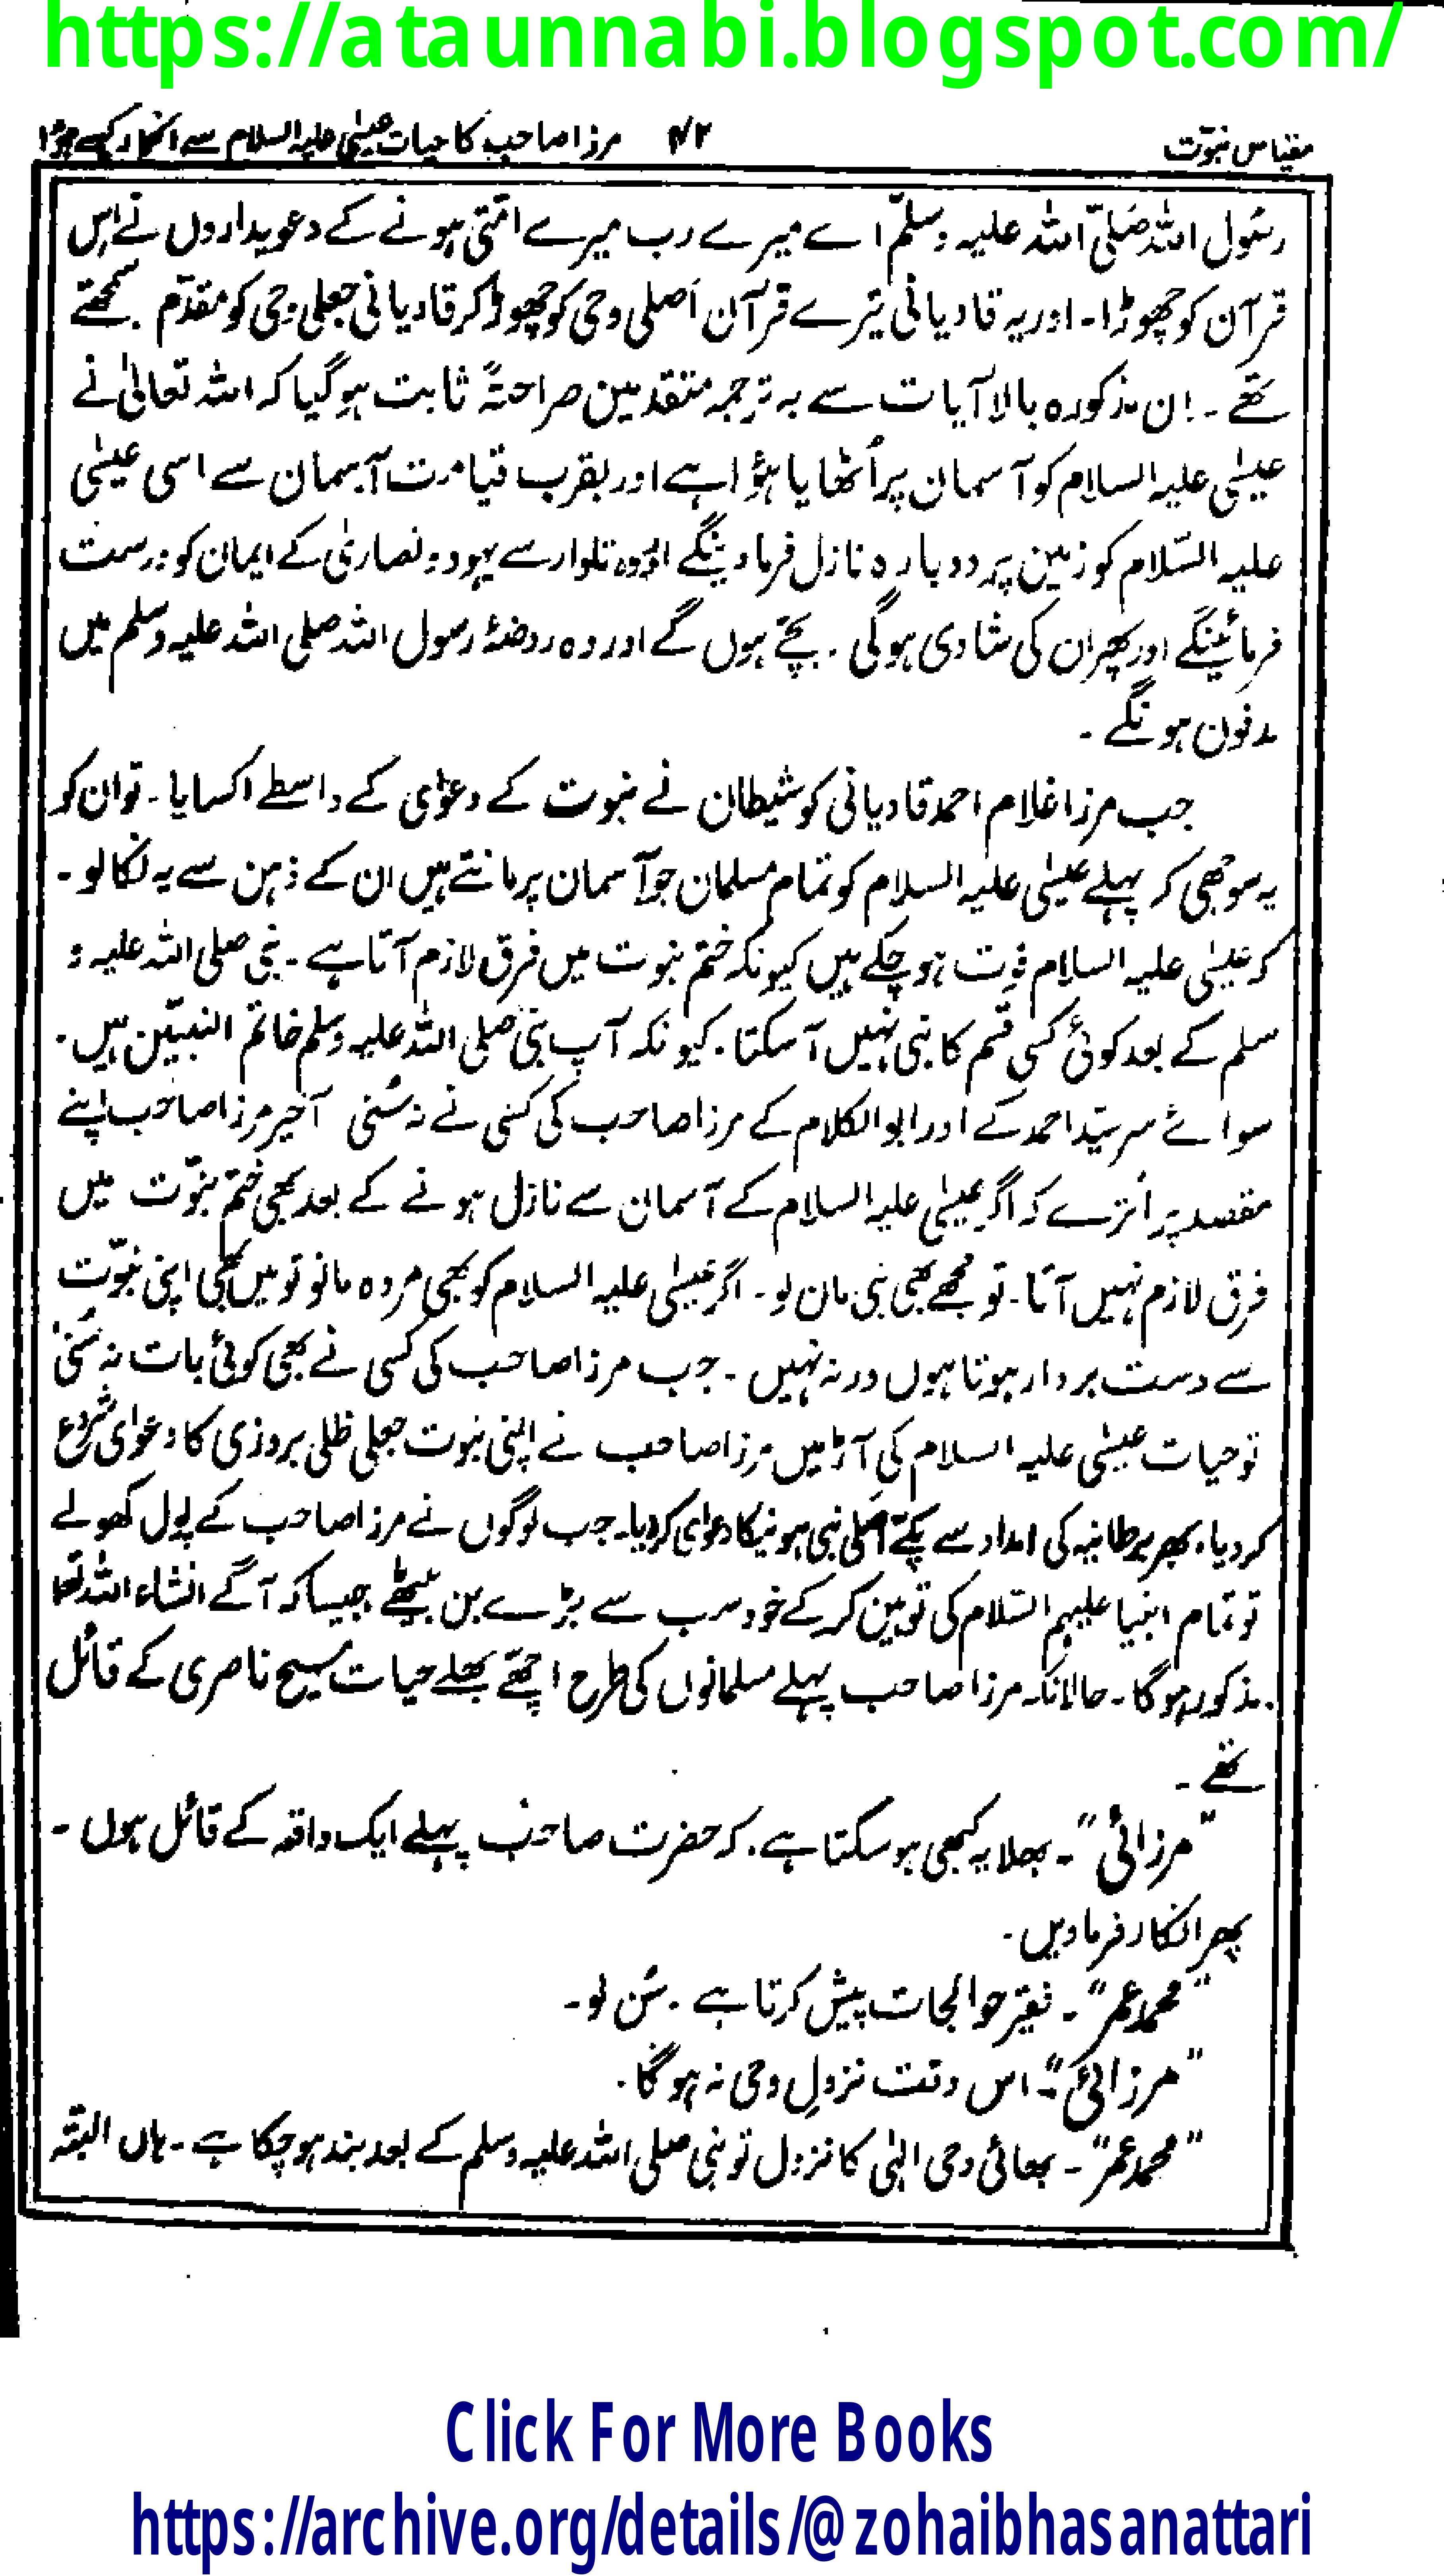 https://ataunnabi.blogspot.com/
مقیاس نبوّت ۴۲ مرزا صاحب کا حیات عیسٰی علیہ السلام سے انکار کیسے ہوا
رسُول اللہ صَلیّ اللہ علیہ وسلّم اے میرے رب میرے امّتی ہونے کے دعویداروں نے اِس
قرآن کو چھوڑا۔ اور یہ قادیانی تیرے قرآن اَصلی وحی کو چھوڑ کر قادیانی جعلی وحی کو مقدّم سمجھتے
تھے۔ اِن مذکورہ بالا آیات سے بہ ترجمہ متقدمین صراحتہً ثابت ہوگیا کہ اللہ تعالیٰ نے
عیسٰی علیہ السلام کو آسمان پر اُٹھایا ہؤا ہے اور بقرب قیامت آسمان سے اسی عیسٰی
علیہ السّلام کو زمین پر دوبارہ نازل فرماوینگے اور وہ تلوار سے یہود و نصاریٰ کے ایمان کو درست
فرمائینگے اور پھر ان کی شادی ہوگی۔ بچّے ہوں گے اور وہ روضۂ رسول اللہ صلی اللہ علیہ وسلم میں
مدفون ہونگے۔
جب مرزا غلام احمد قادیانی کو شیطان نے نبوت کے دعوٰی کے واسطے اکسایا۔ تو ان کو
یہ سوجھی کہ پہلے عیسٰی علیہ السلام کو تمام مسلمان جو آسمان پر مانتے ہیں ان کے ذہن سے یہ نکالو۔
کہ عیسٰی علیہ السلام فوت ہوچکے ہیں کیونکہ ختم نبوت میں فرق لازم آتا ہے۔ نبی صلی اللہ علیہ و
سلم کے بعد کوئی کسی قسم کا نبی نہیں آسکتا۔ کیونکہ آپ نبی صلی اللہ علیہ وسلم خاتم النبیّین ہیں۔
سوائے سر سیّد احمد کے اور ابوالکلام کے مرزا صاحب کی کسی نے نہ سُنی آخیر مرزا صاحب اپنے
مقصد پر اُترے کہ اگر عیسٰی علیہ السلام کے آسمان سے نازل ہونے کے بعد بھی ختم نبوّت میں
فرق لازم نہیں آتا۔ تو مجھے بھی نبی مان لو۔ اگر عیسٰی علیہ السلام کو بھی مردہ مانو تو میں بھی اپنی نبوّت
سے دست بردار ہوتا ہوں ورنہ نہیں۔ جب مرزا صاحب کی کسی نے بھی کوئی بات نہ سُنی
تو حیات عیسٰی علیہ السلام کی آڑ میں مرزا صاحب نے اپنی نبوت جعلی ظلی بروزی کا دعوٰی شروع
کردیا۔ پھر برطانیہ کی امداد سے پکّے اصلی نبی ہونیکا دعوٰی کردیا۔ جب لوگوں نے مرزا صاحب کے پول کھولے
تو تمام انبیا علیہم السّلام کی توہین کرکے خود سب سے بڑے بن بیٹھے جیسا کہ آگے انشاء اللہ تعا
مذکور ہوگا۔ حالانکہ مرزا صاحب پہلے مسلمانوں کی طرح اچھّے بھلے حیات مسیح ناصری کے قائل
تھے۔
"مرزائی"۔ بھلا یہ کبھی ہوسکتا ہے۔ کہ حضرت صاحب پہلے ایک واقعہ کے قائل ہوں۔
پھر انکار فرماویں۔
"محمد عمر"۔ فقیر حوالجات پیش کرتا ہے۔ سُن لو۔
"مرزائی"۔ اس وقت نزولِ وحی نہ ہوگا۔
"محمد عمر"۔ بھائی وحی الہٰی کا نزول تو نبی صلی اللہ علیہ وسلم کے بعد بند ہوچکا ہے۔ ہاں البتّہ
Click For More Books
https://archive.org/details/@zohaibhasanattari